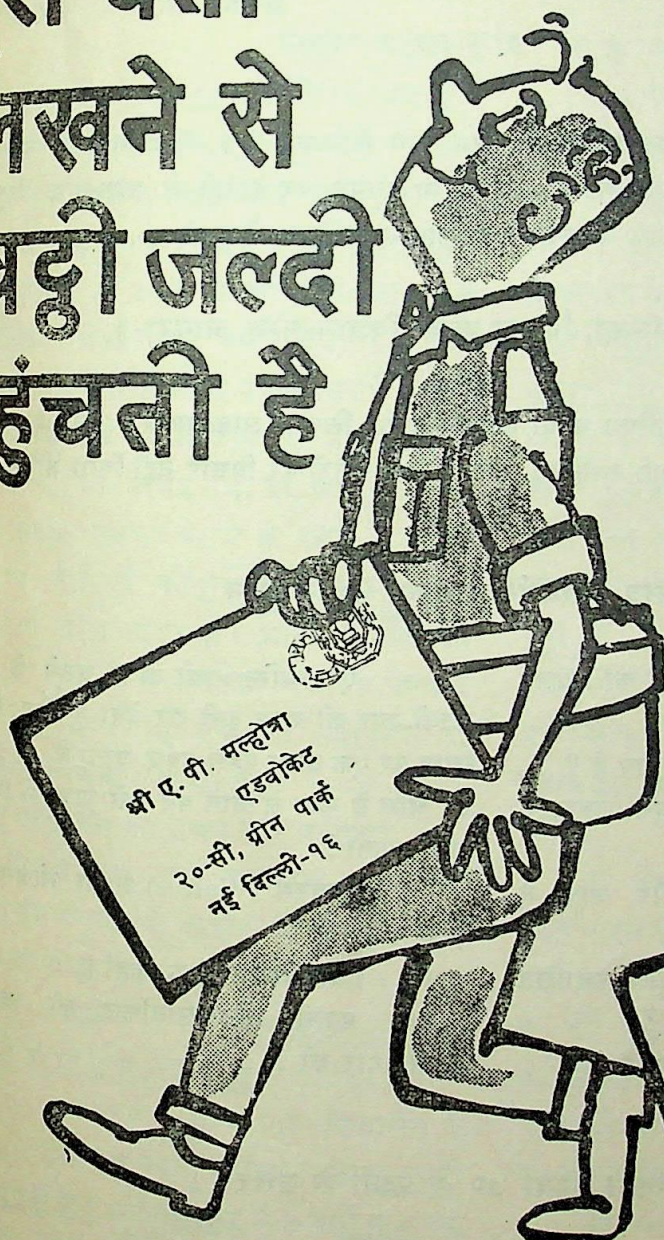 लखने से
जल्दी
है
श्री ए. पी. मल्होत्रा
एडवोकेट
२०-सी, ग्रीन पार्क
नई दिल्ली-१६